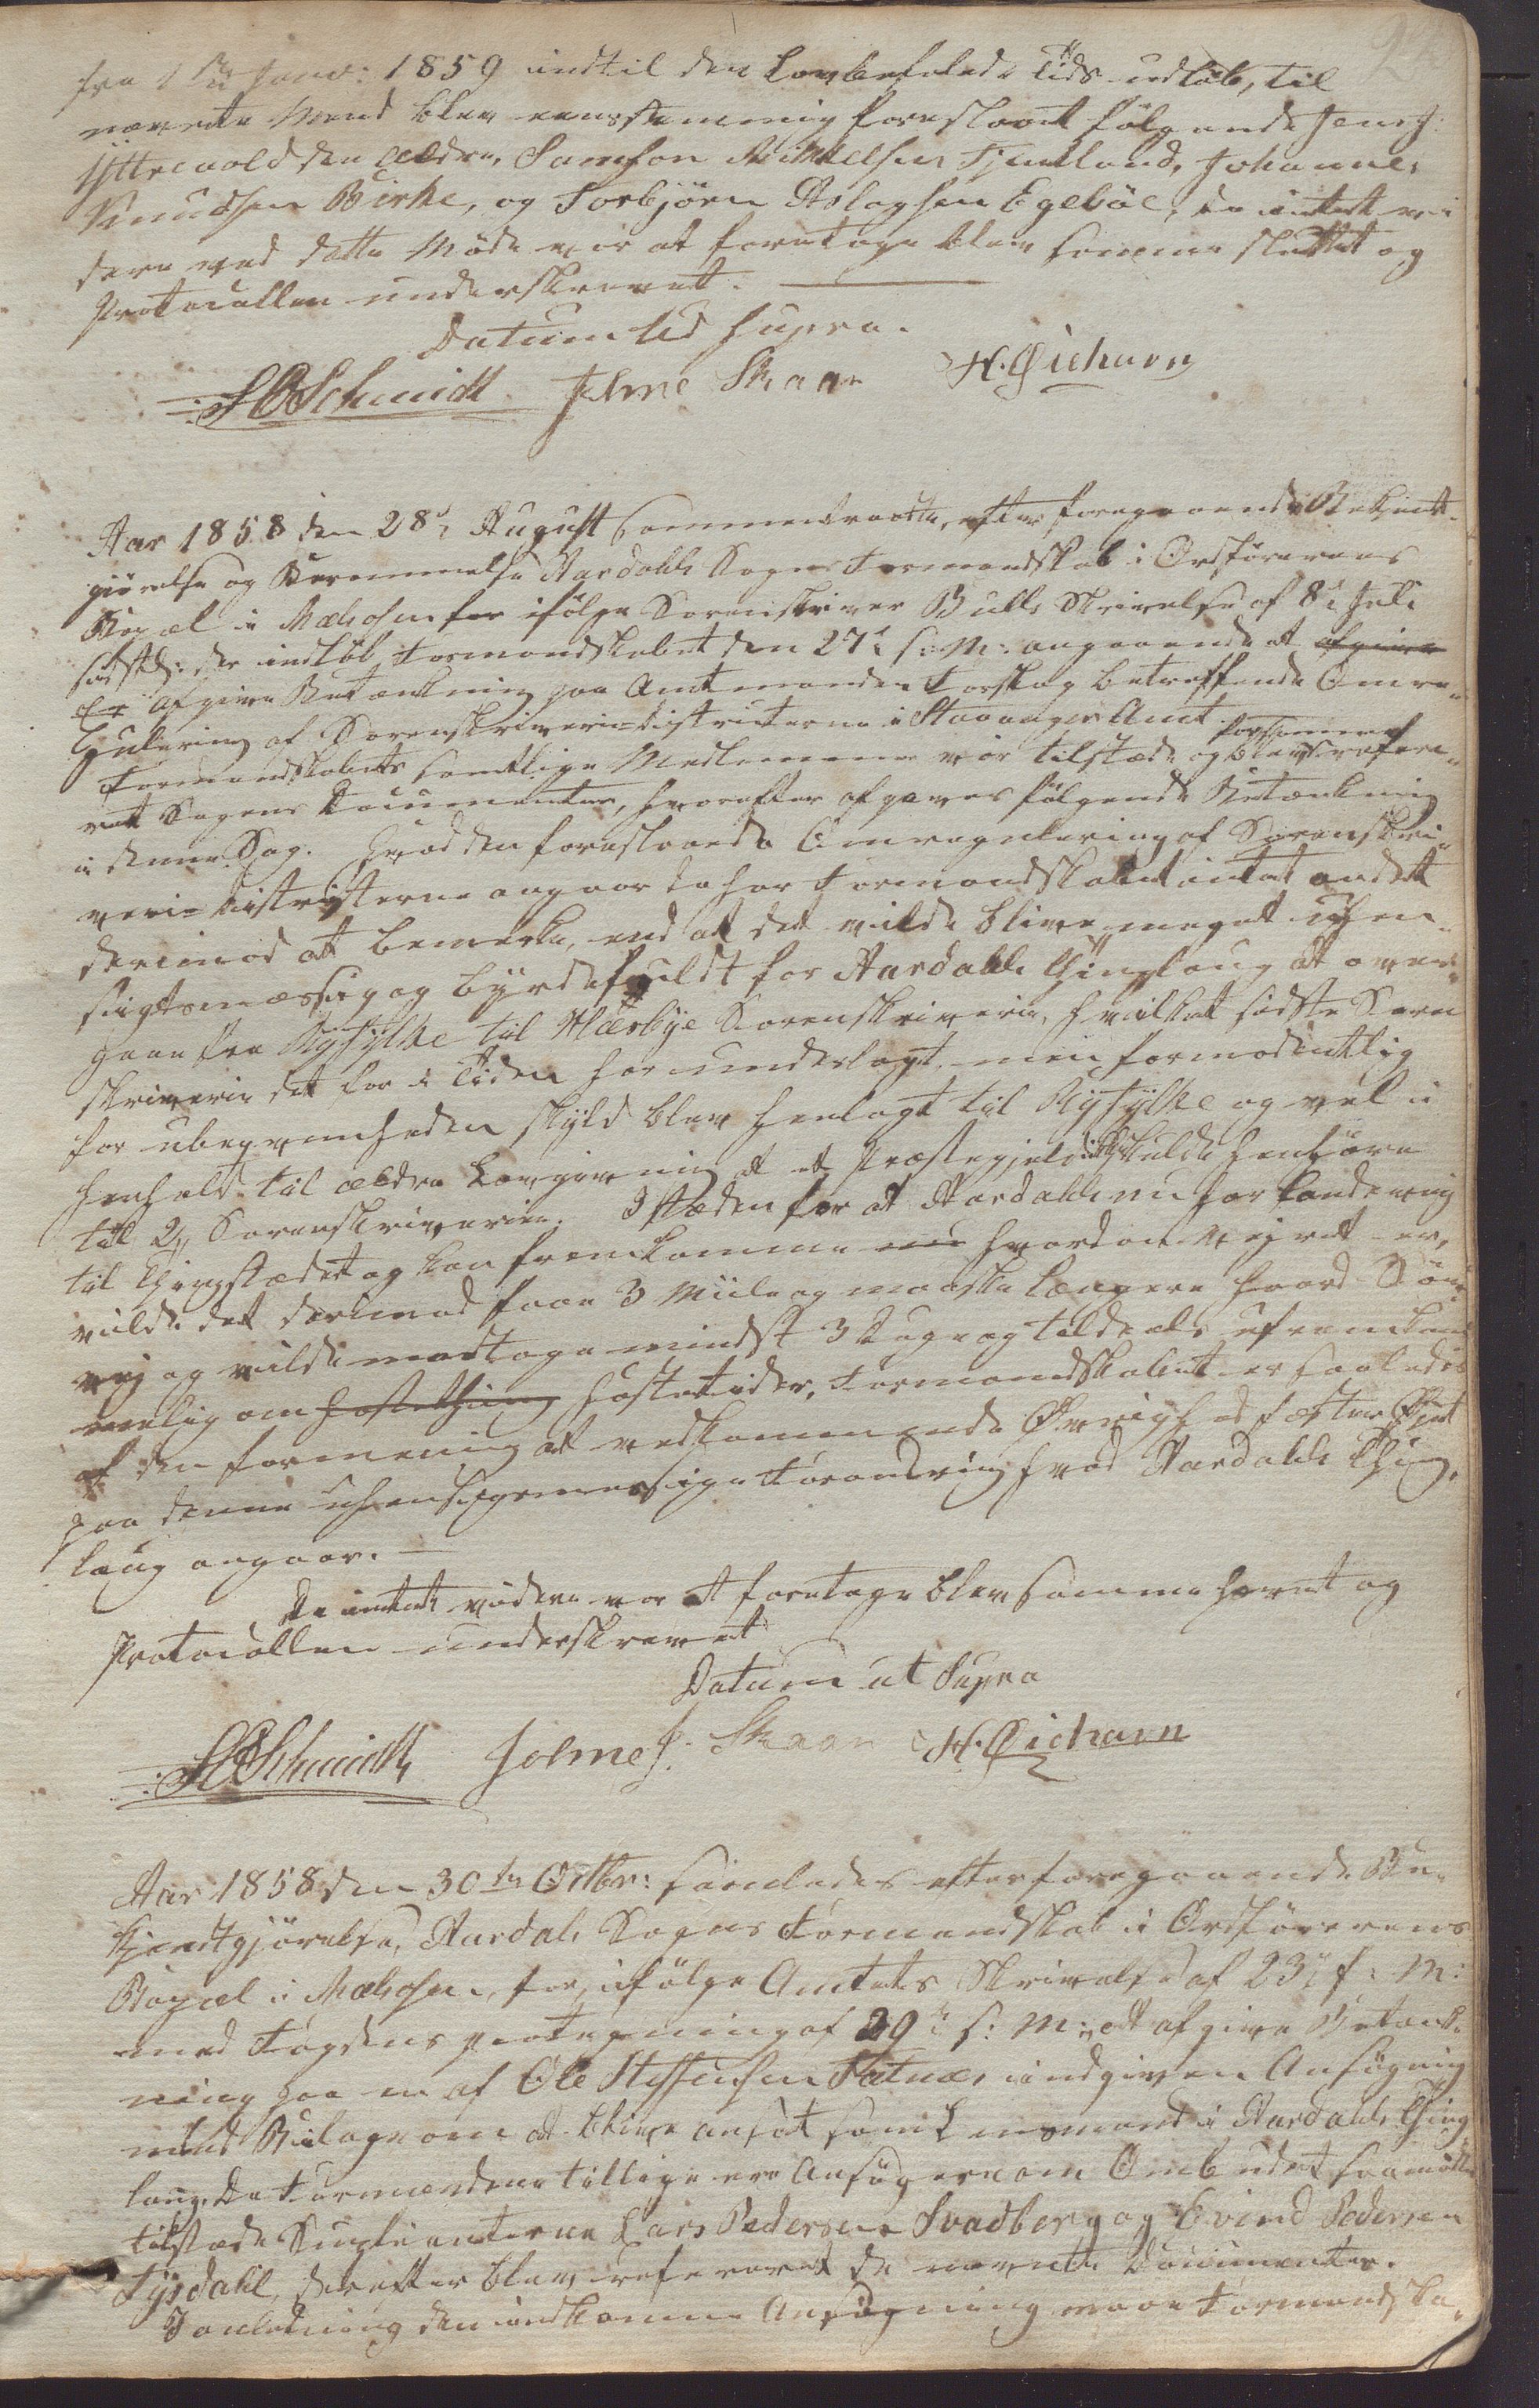 fra 1ste Janv: 1859 indtil den Lovbefalede Tids udløb, til
nævnte Mænd blev eensstemmig foreslaaet følgende Jens J:
Ytrevold den ældre, Samson Mikkelsen Tjentland, Johannes
Knudsen Birke, og Torbjörn Aslagsen Egeböe, da intet vi
dere ved dette Møde var at foretage blev samme sluttet og
Protocollen underskrevet.
Datum Ud supra.
Schmidt Jolme Skaar H. Qvieharn
Aar 1858 den 28de August sammentraadte, efter foregaaende Bekjendt-
giörelse og Berammelse Aardahls Sogns Formandskab i Ordförerens
Bopæl i Mælosen for ifölge Sorenskriver Bulls Skrivelse af 8de Juli
sidstl: der indløb Formandskabet den 27de s: M: angaaende at afgive
afgive Betænkning paa Amtmandens Forslag betreffende Omre-
gulering af Sorenskriverie-Districterne i Stavanger Amt.
Formandskabets samtlige Medlemmer var tilstæde og blev forsamm refere-
ret Sagens Documenter, hvorefter afgaves følgende Betænkning
i denne Sag. Hvad den foreslaaede Omregulering af Sorenskri-
verie Districterne angaar da har Formandskabet intet andet
derimod at bemerke, end at det vilde blive meget uhen-
sigtsmæssig og byrdefuldt for Aardahls Thinglaug at over-
gaae fra Ryfylke til Hæsbye Sorenskriverie, hvilket sidste Soren
skriverie det for i Tiden har underlagt, men formodentlig
for ubeqvemheden skyld blev henlagt til Ryfylke og vel i
henhold til ældre Lovgivning at et Præstegjeld ikke skulde henhøre
til 2de Sorenskriverier. Istæden for at Aardahl nu har Landevei
til Thingstædet og kan fremkomme nu hvordan Vejret er,
vilde det derimod faae 3 Miile og maaske længere haard Sö-
vej og vilde medtage mindst 3 Dage og tildeels ufremkom
melig om Høstething Høstetider. Formandskabet er saaledes
af den formening at vedkommende Øvrighed fæster Øiet
paa denne uhensigtsmæssige Forandring hvad Aardahls Thing-
laug angaar.
Da intet videre var at foretage blev samme hævet og
Protocollen underskrevet
Datum ut Supra
Schmidt Jolme J. Skaar H. Qvieharn
Aar 1858 den 30te Octbr: samledes efter foregaaende Be-
kjendtgjørelse, Aardals Sogns Formandskab i Ordførerens
Bopæl i Mælosen, for, ifølge Amtets Skrivelse af 23de s: M:
med Fogdens paategning af 29de s: M: at afgive Betænk-
ning paa en af Ole Steffensen Fatnæs indgiven Ansøgning
med Bilage om at blive ansat som Lensmand i Aardahls Thing
laug. Da Formændene tillige ere Ansøgere om Ombudet fremmødte
tilstæde Suplianterne Lars Pedersen Svadberg og Eivind Pedersen
Tysdahl, derefter blev refereret de nævnte Documenter.
I anledning den indkomne Ansøgning maae Formandska-